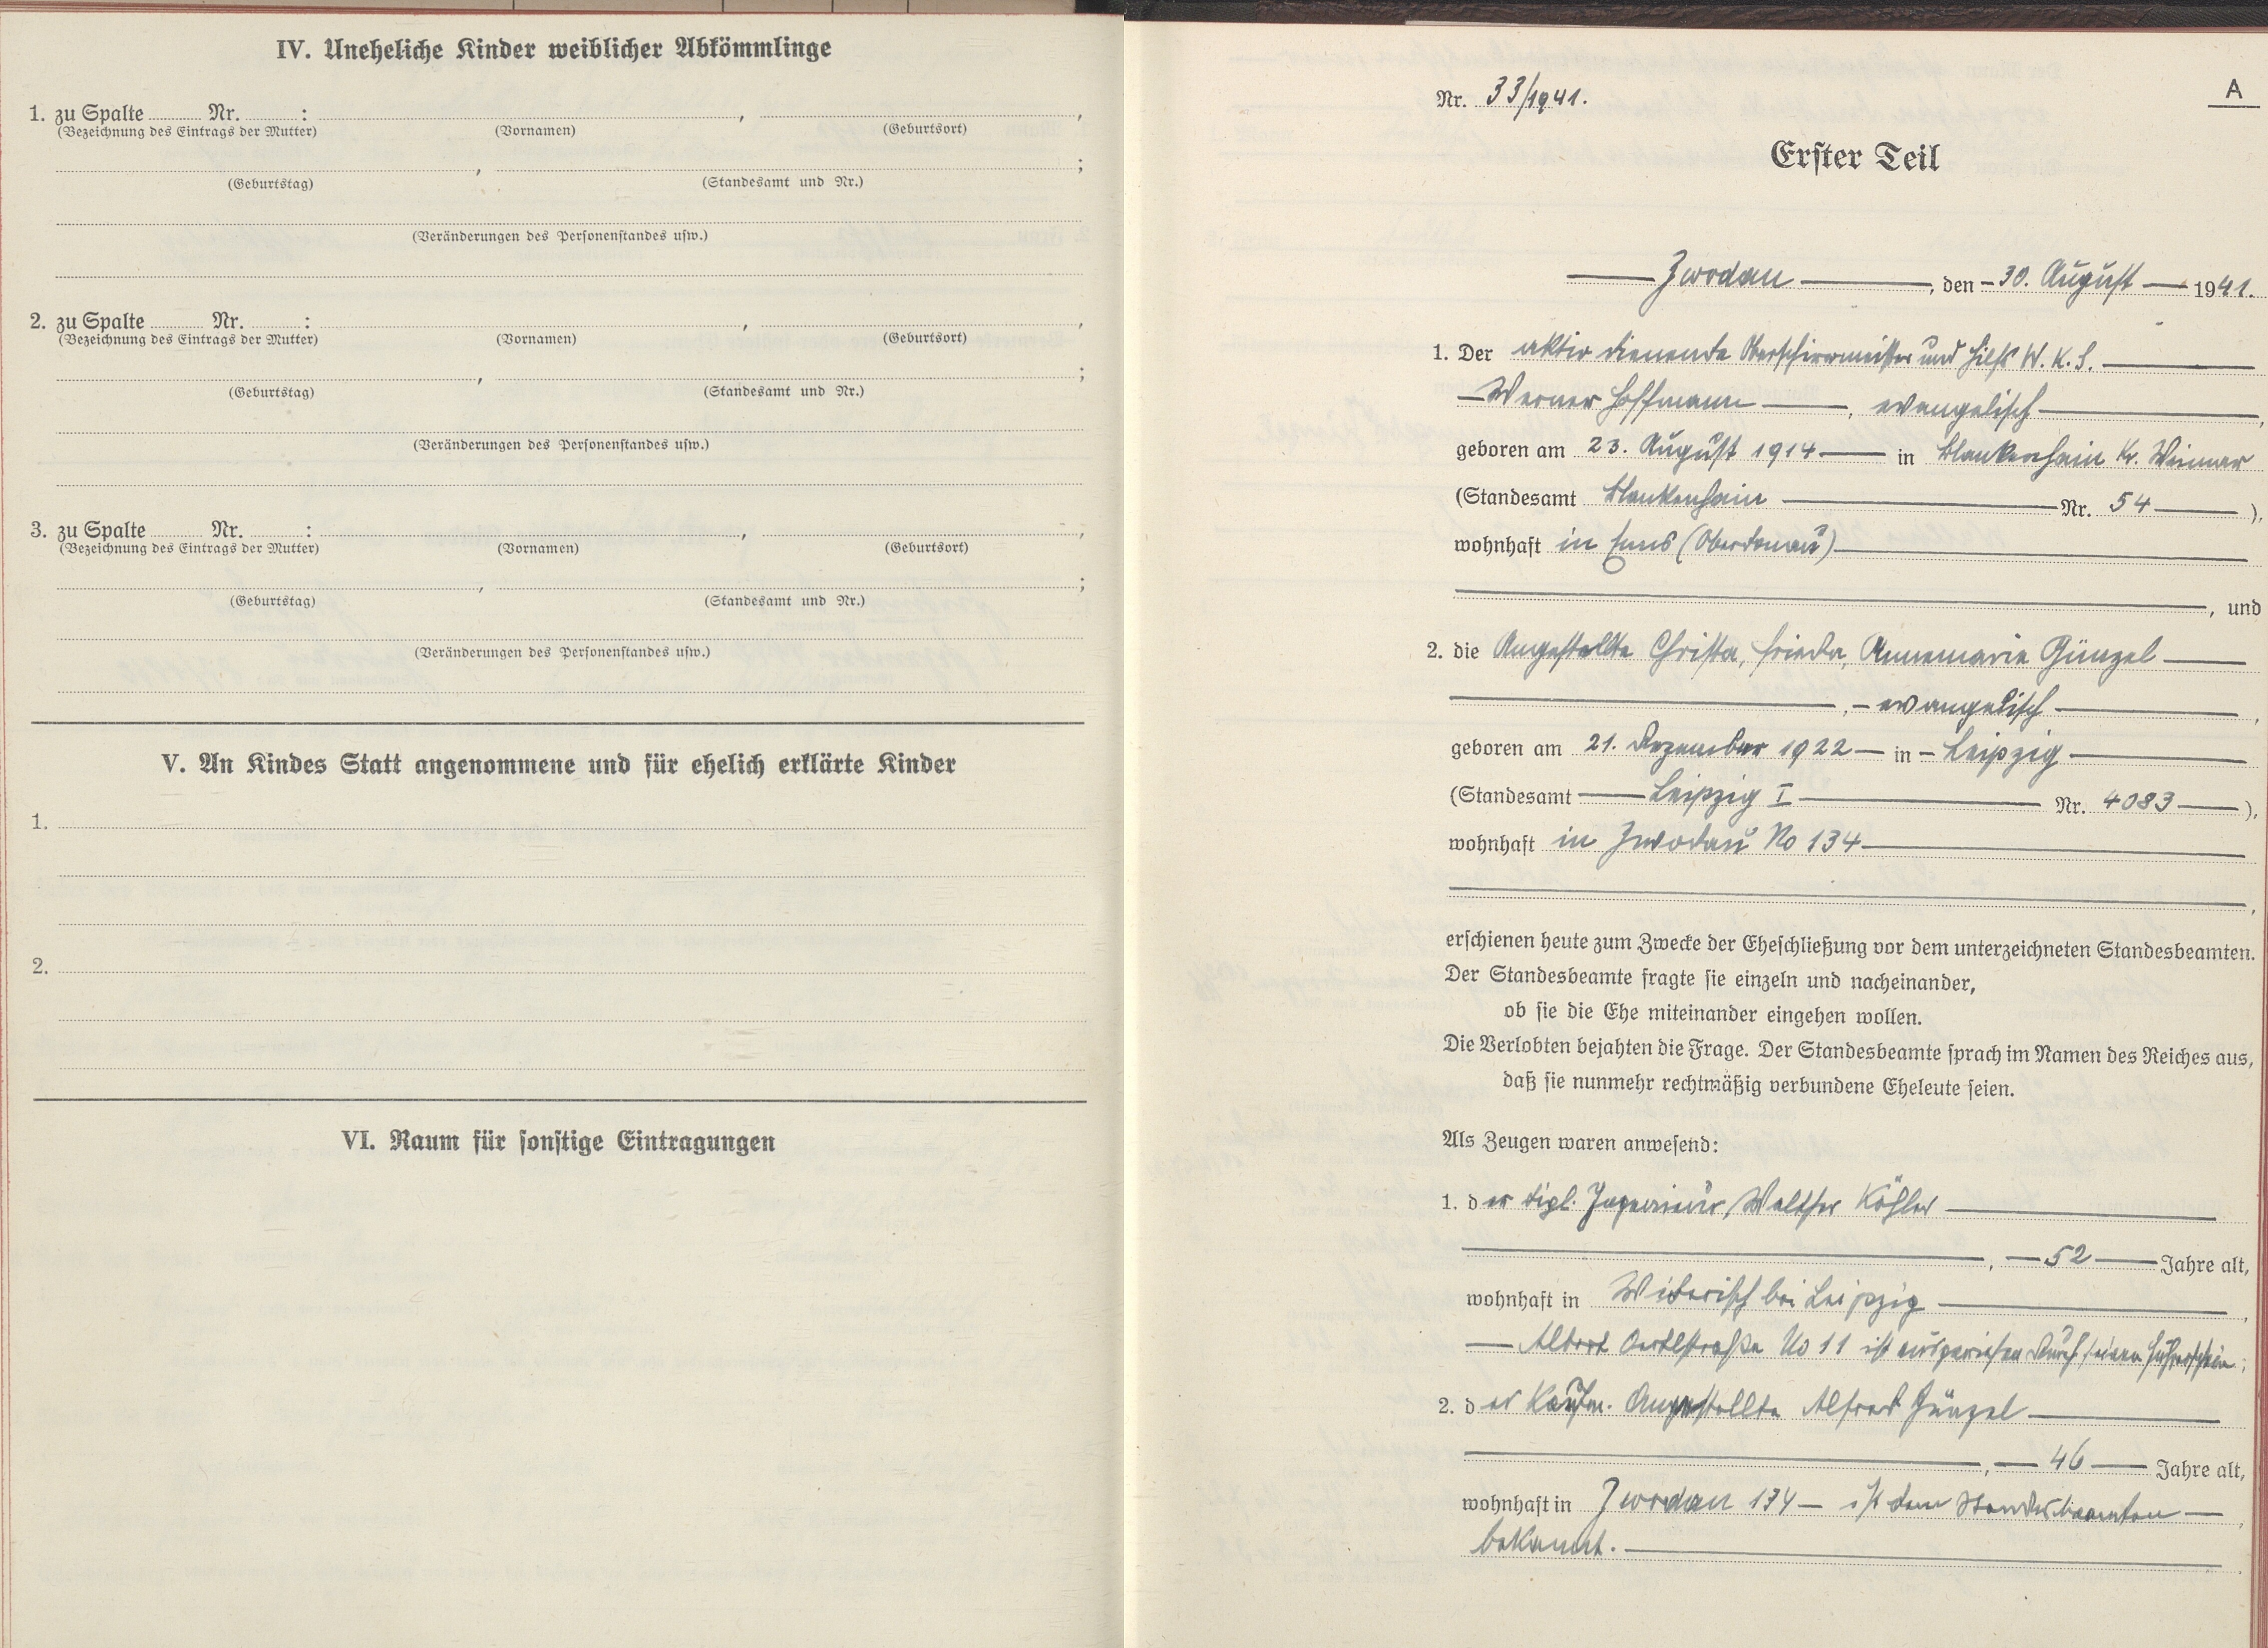 IV. Uneheliche Kinder weiblicher Abkömmlinge
1. zu Spalte ........ Nr. ........ : ........ , ........ ,
(Bezeichnung des Eintrags der Mutter) (Vornamen) (Geburtsort)
........ , ........ ;
(Geburtstag) (Standesamt und Nr.)
(Veränderungen des Personenstandes usw.)
2. zu Spalte ........ Nr. ........ : ........ , ........ ,
(Bezeichnung des Eintrags der Mutter) (Vornamen) (Geburtsort)
........ , ........ ;
(Geburtstag) (Standesamt und Nr.)
(Veränderungen des Personenstandes usw.)
3. zu Spalte ........ Nr. ........ : ........ , ........ ,
(Bezeichnung des Eintrags der Mutter) (Vornamen) (Geburtsort)
........ , ........ ;
(Geburtstag) (Standesamt und Nr.)
(Veränderungen des Personenstandes usw.)
V. An Kindes Statt angenommene und für ehelich erklärte Kinder
1.
2.
VI. Raum für sonstige Eintragungen
A
Nr. 33/1941.
Erster Teil
Zwodau, den 30. August 1941.
1. Der aktiv dienende Oberschirrmeister und Hilfs W. K. S.
Werner Hoffmann, evangelisch,
geboren am 23. August 1914 in Blankenhain Kr. Weimar
(Standesamt Blankenhain Nr. 54),
wohnhaft in Enns (Oberdonau)
, und
2. die Angestellte Christa, Frieda, Annemarie Günzel
, evangelisch,
geboren am 21. Dezember 1922 in Leipzig
(Standesamt Leipzig I Nr. 4083),
wohnhaft in Zwodau No 134
,
erschienen heute zum Zwecke der Eheschließung vor dem unterzeichneten Standesbeamten.
Der Standesbeamte fragte sie einzeln und nacheinander,
ob sie die Ehe miteinander eingehen wollen.
Die Verlobten bejahten die Frage. Der Standesbeamte sprach im Namen des Reiches aus,
daß sie nunmehr rechtmäßig verbundene Eheleute seien.
Als Zeugen waren anwesend:
1. der dipl. Ingenieur Walther Köhler
, 52 Jahre alt,
wohnhaft in Wiederitsch bei Leipzig,
Albert Oertlstraße No 11 ist ausgewiesen durch seinen Führerschein;
2. der Kaufm. Angestellte Alfred Günzel
, 46 Jahre alt,
wohnhaft in Zwodau 134 ist dem Standesbeamten,
bekannt.